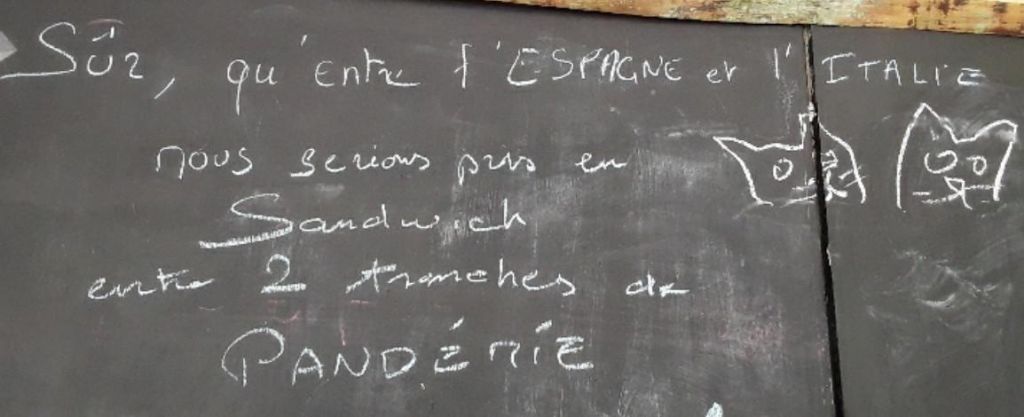 Sûr, qu'entre l'ESPAGNE et l'ITALIE
nous serions pris en
Sandwich
entre 2 tranches de
PANDÉMÍE